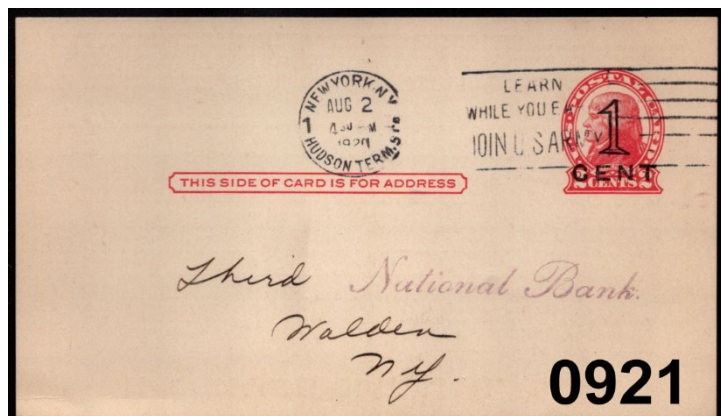 NEW YORK, N.Y.
AUG 2
1920
HUDSON TERM. STA.
1
LEARN
WHILE YOU EA
JOIN U S ARMY
1
CENT
CENTS
THIS SIDE OF CARD IS FOR ADDRESS
Third National Bank.
Walden
NY.
0921